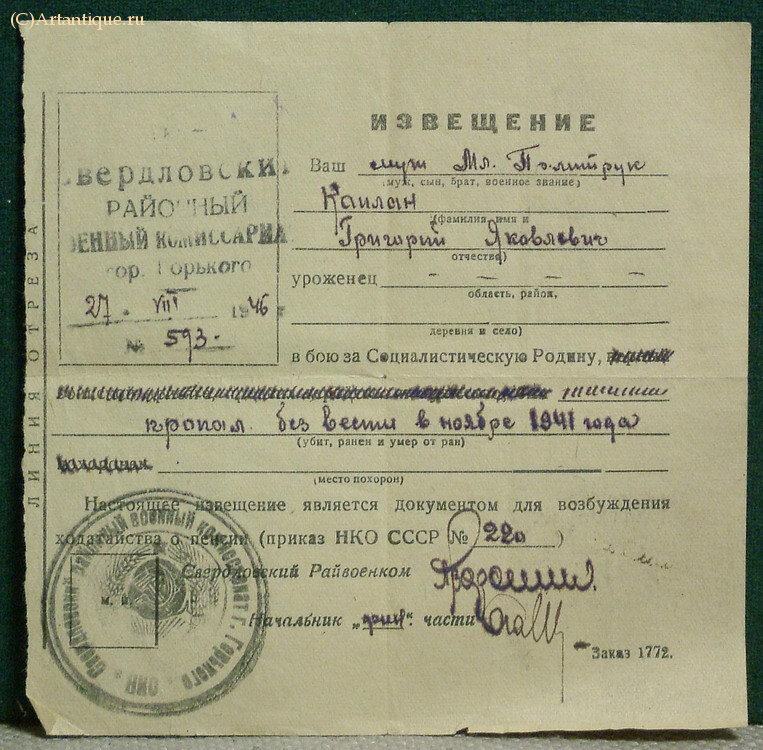 (C)Artantique.ru
ИЗВЕЩЕНИЕ
Свердловский
РАЙОННЫЙ
ВОЕННЫЙ КОМИССАРИАТ
гор. Горького
27 · VIII 1946 г
№ 593.
ЛИНИЯ ОТРЕЗА
Ваш муж Мл. Политрук
(муж, сын, брат, военное звание)
Каплан
(фамилия, имя и
Григорий Яковлевич
отчество)
уроженец – – – –
область, район,
деревня и село)
в бою за Социалистическую Родину,
пропал без вести в ноябре 1941 года
(убит, ранен и умер от ран)
(место похорон)
Настоящее извещение является документом для возбуждения
ходатайства о пенсии (приказ НКО СССР № 220)
Свердловский Райвоенком
Начальник " " части
м. п.
Заказ 1772.